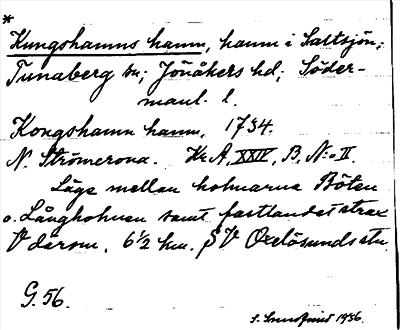 *
Kungshamns hamn, hamn i Saltsjön;
Tunaberg sn; Jönåkers hd; Söder-
manl. l.
Kongshamn hamn, 1734.
N. Strömcrona. Kr. A, XXIV, B, N:o II.
Läge mellan holmarna Böten
o. Långholmen samt fastlandet strax
V därom, 6 1/2 km. SV Oxelösunds stn.
G. 56.
1936.